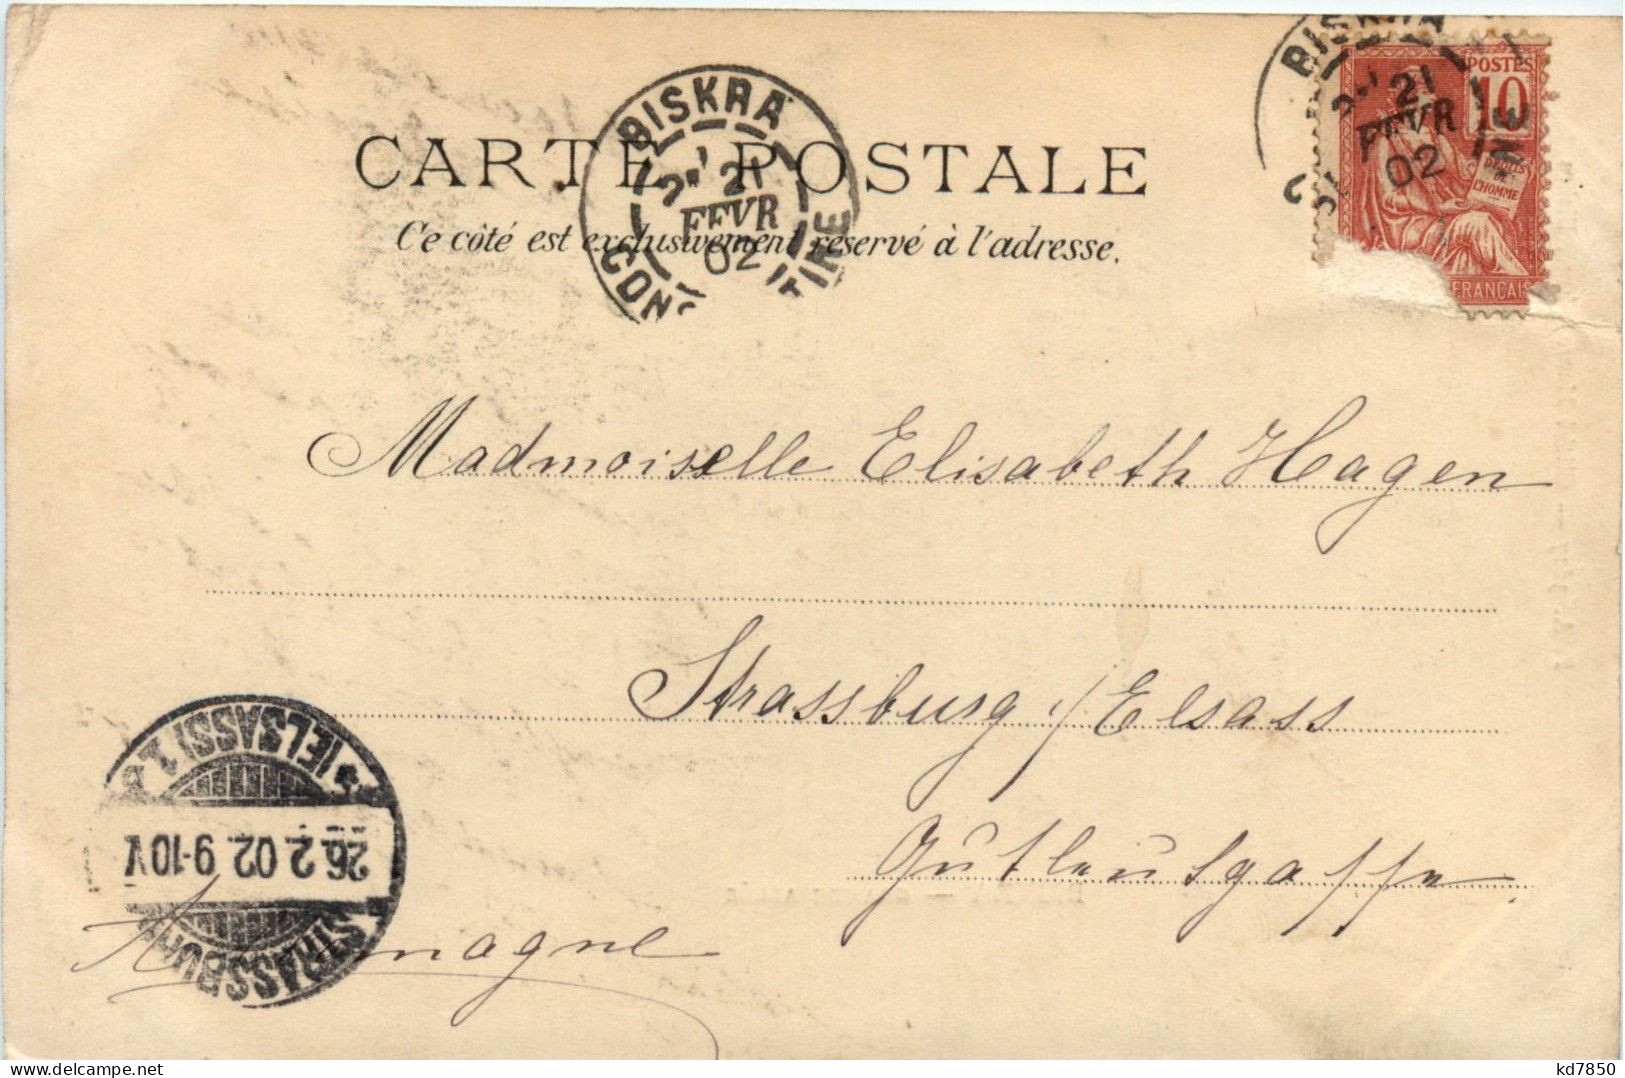 BISKRA
2E 21
FEVR
02
CONSTANTINE
BISKRA
21
FEVR
02
NE
POSTES
10
DROITS
DE
L'HOMME
FRANÇAIS
CARTE POSTALE
Ce côté est exclusivement réservé à l'adresse.
Madmoiselle Elisabeth Hagen
Strassburg i/Elsass
Gutleutgasse.
Allemagne
STRASSBURG
26.2.02.9-10V
* (ELSASS) 1
delcampe.net
kd7850